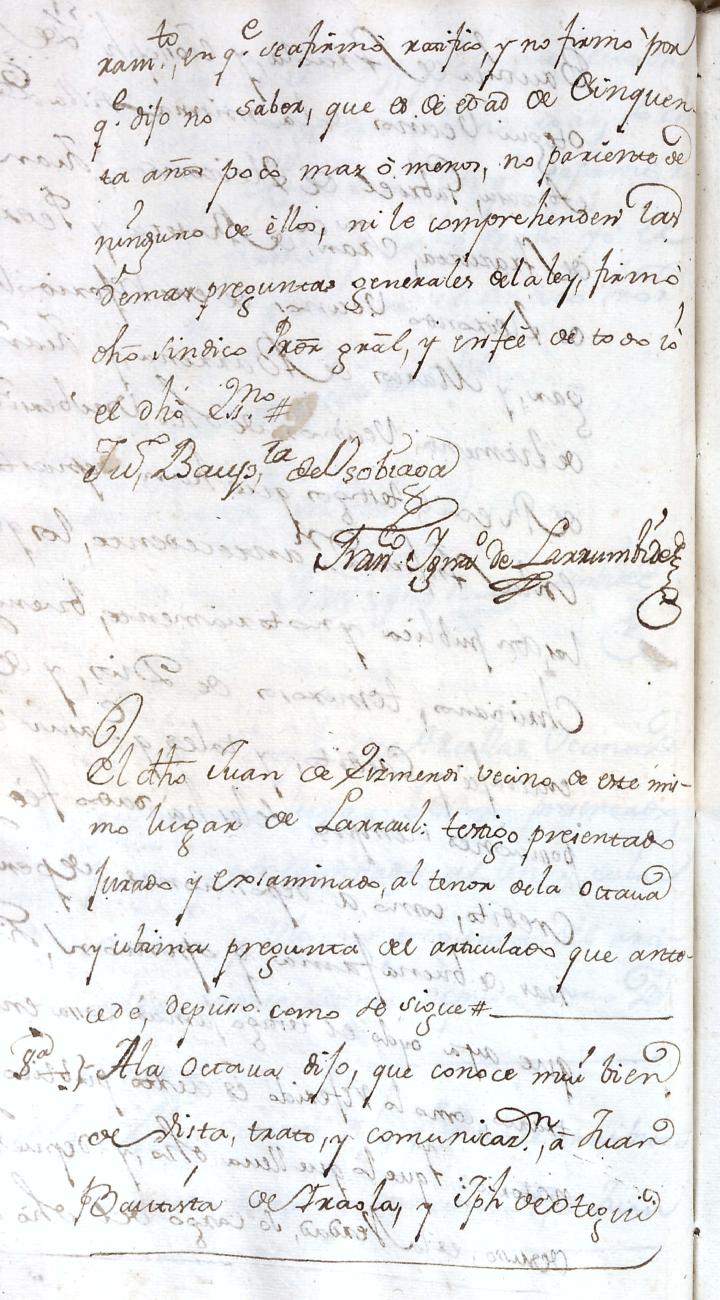 ram.to, en q.e se afirmò ratifico, y no firmo por
q.e dijo no saber, que es de edad de Cinquen-
ta años poco mas ò menos, no pariente de
ninguno de èllos, ni le comprehenden las
demas preguntas generales de la ley, firmò
dho sindico Pror gräl, y en feè de todo ió
el dho Ss.no #
Ju.o Baup.ta de Usobiaga
Fran.co Ign.o de Larrumbide
El dho Juan de Izirmendi vecino de este mis-
mo lugar de Larraul: testigo presentado
Jurado y exsaminado, al tenor dela octava
y ultima pregunta del articulado que ante-
cede, depusso como se sigue #
8.a A la octava dijo, que conoce muï bien
de vista, trato, y comunicaz.n, à Juan
Bautista de Iraola, y Jph de Otegui